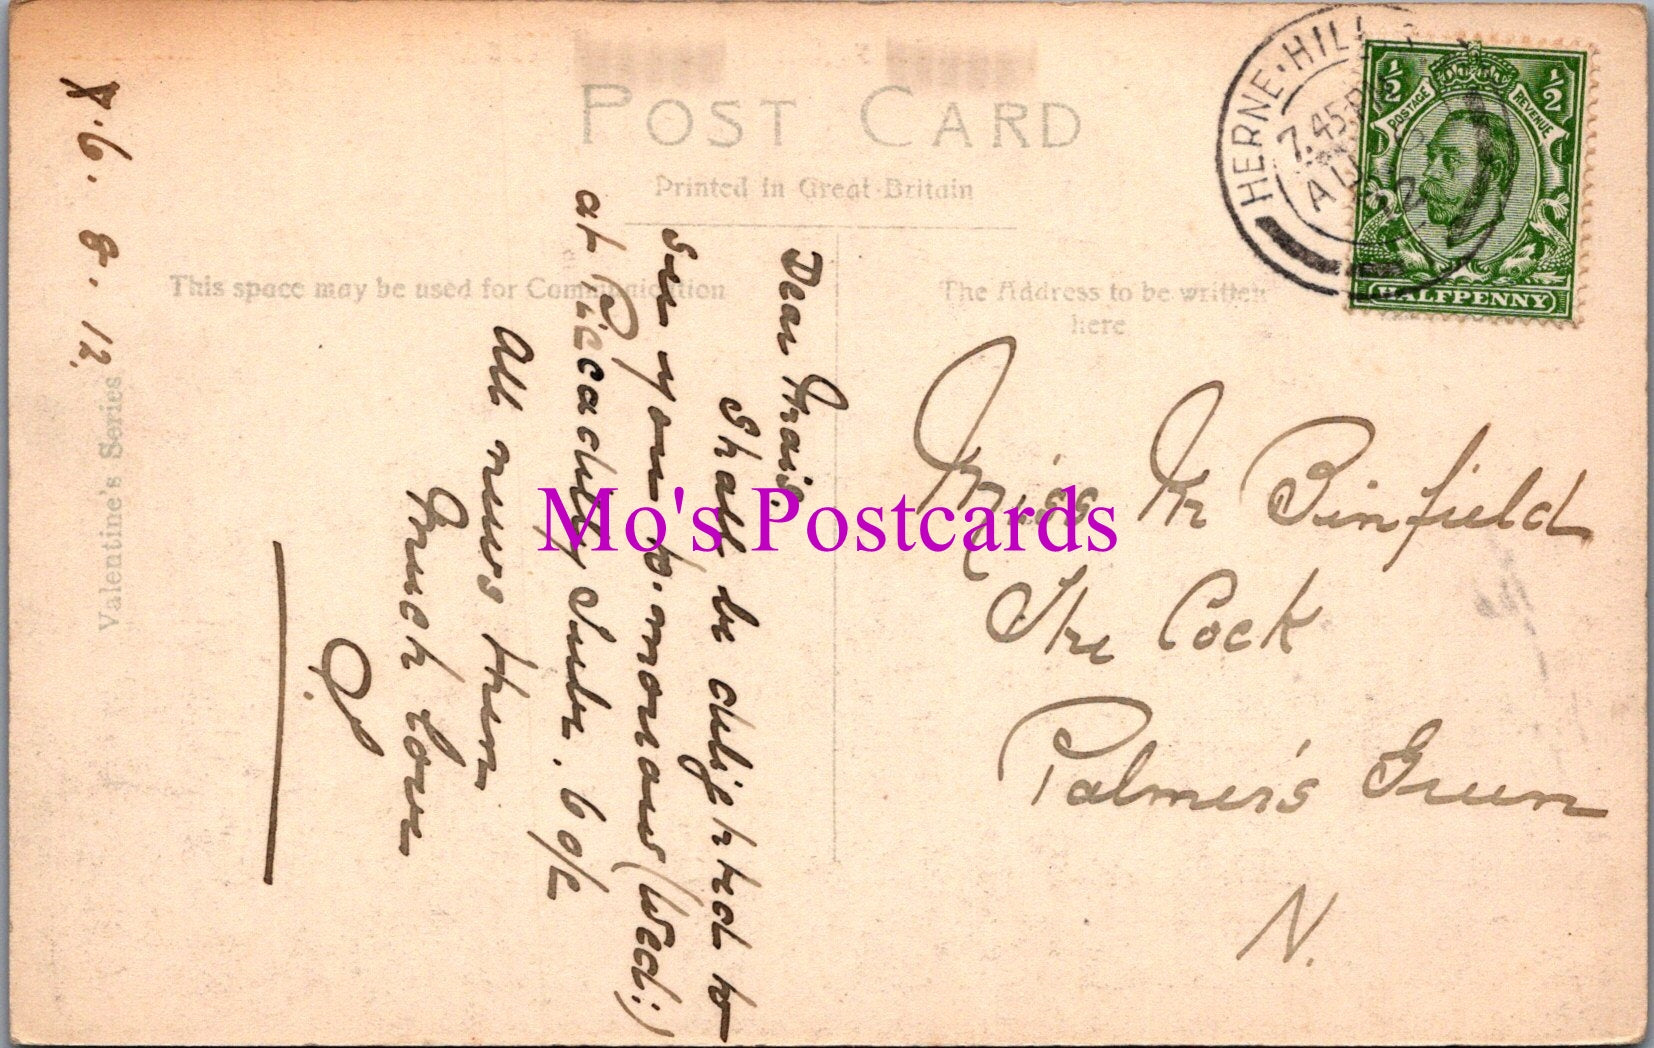 POST CARD
Printed in Great Britain
This space may be used for Communication
The Address to be written
here
HERNE·HILL
7.45PM
AU 6
12
½ ½
POSTAGE REVENUE
HALFPENNY
Miss M Binfield
The Cock
Palmer's Green
N.
X. 6. 8. 12.
Dear Mais.
Shall be delighted to
see you to-morrow (Wed:)
at Piccadilly Tube. 6 o/c
All news then
Much love
Valentine's Series
Mo's Postcards